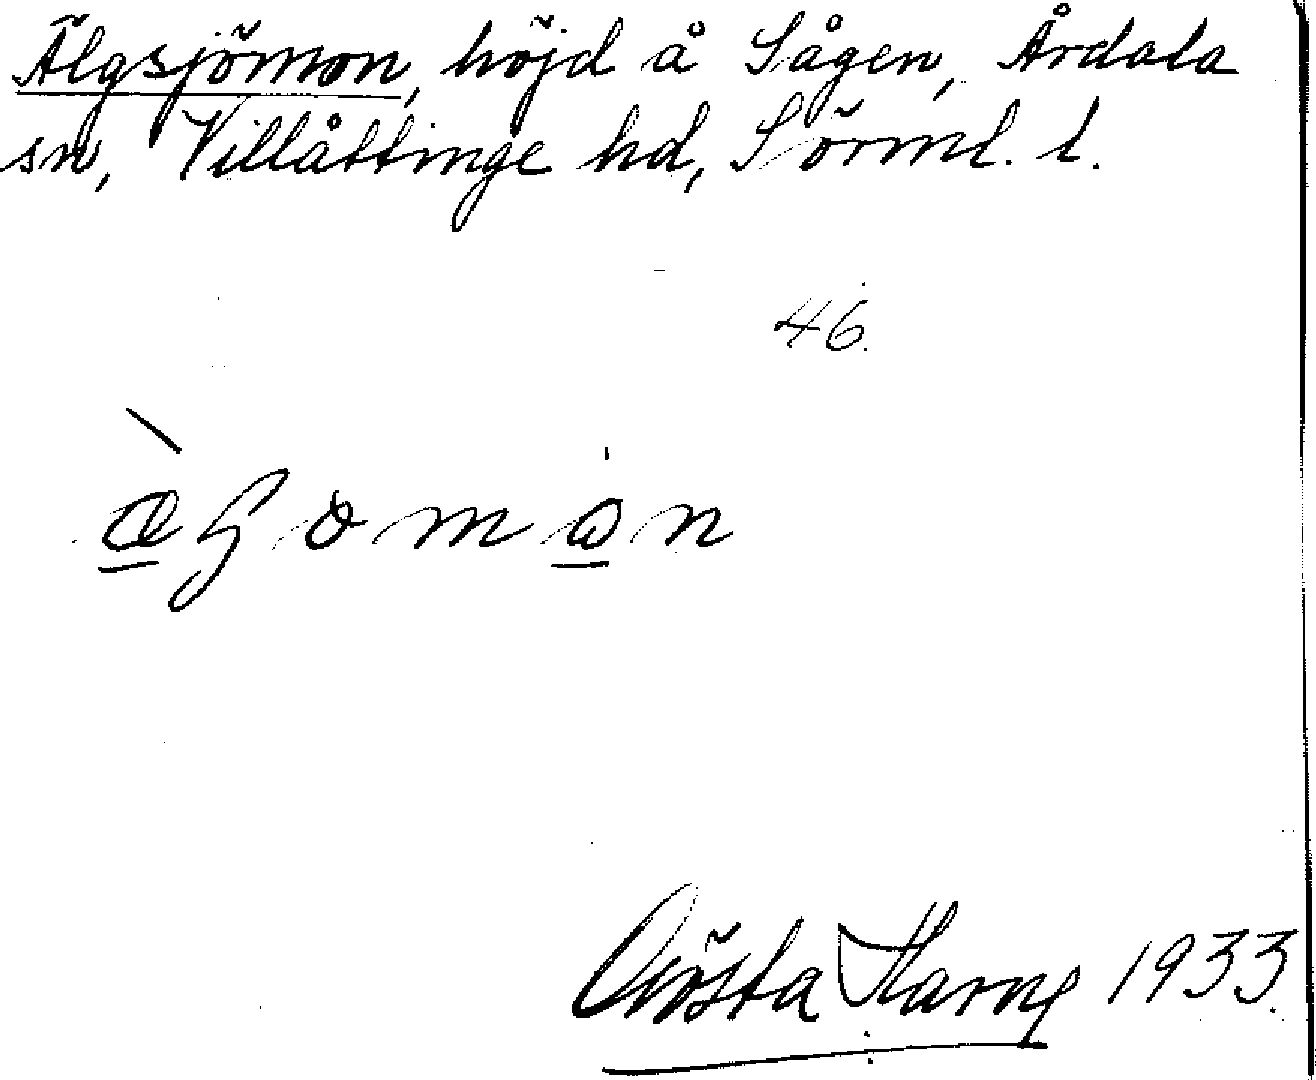 Älgsjömon, höjd å Sågen, Årdala
sn, Villåttinge hd, Sörml. l.
46.
Gösta
1933.